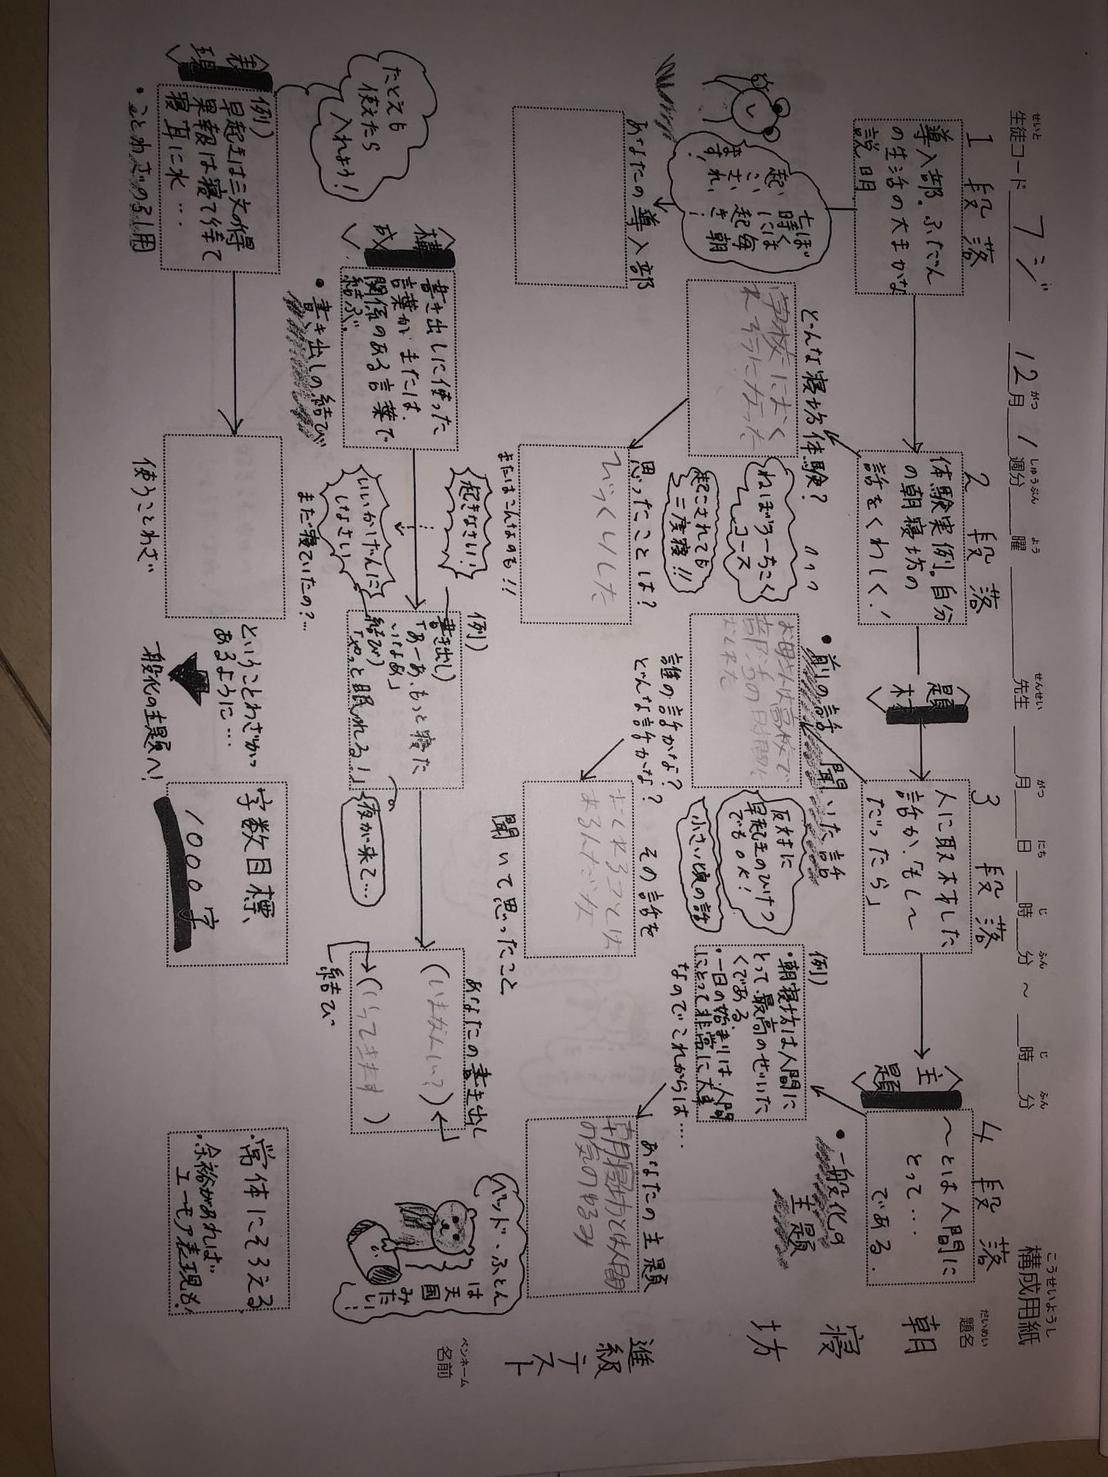 構成用紙
こうせいようし
題名
だいめい
朝寝坊
進級テスト
ペンネーム
名前
生徒コード フジ
せいと
12月 1週分
がつ しゅうぶん
曜
よう
先生
せんせい
月 日 時 分 ～ 時 分
がつ にち じ ふん じ ふん
1段落
導入部。ふだん
の生活の大まかな
説明
七時には
毎朝
起き!
あなたの導入部
2段落
体験実例。自分
の朝寝坊の
話をくわしく!
どんな寝坊体験?
学校におく
れそうになった
ねぼう→ちこく
コース
起こされても
二度寝!!
思ったことは?
びっくりした
またはこんなのも!!
〈題材〉
3段落
人に取材した
話か、「もし〜
だったら」
・前の話 聞いた話
お母さんは高校で
反対に
早起きのひけつ
でもOK!
小さい頃の話
誰の話かな?
どんな話かな?
その話を
聞いて思ったこと
〈主題〉
4段落
〜とは人間に
とって…
である.
・一般化の
主題
例)
・朝寝坊は人間に
とって、最高のぜいた
くである.
・一日の始まりは、人間
にとって非常に大事
なのでこれからは….
あなたの主題
朝寝坊とは人間
の気のゆるみ
ベッド・ふとん
は
天国
みたい!
〈構成〉
書き出しに使った
言葉か、または、
関係のある言葉で
結ぶ。
・書き出しの結び
起きなさい!
いいかげんに
しなさい!
まだ寝ていたの?…
例)
書き出し)
「あーあ、もっと寝た
いなぁ」
結び)
「やっと眠れる!」
夜が来て…
あなたの書き出し
(いまなんじ?)
(いってきます)
結び
〈表現〉
たとえも
使えたら
入れよう!
例)
早起きは三文の得
果報は寝て待て
寝耳に水…
・ことわざの引用
使うことわざ
ということわざが
あるように…
一般化の主題へ!
字数目標、
1000字
・常体にそろえる
・余裕があれば
ユーモア表現も!